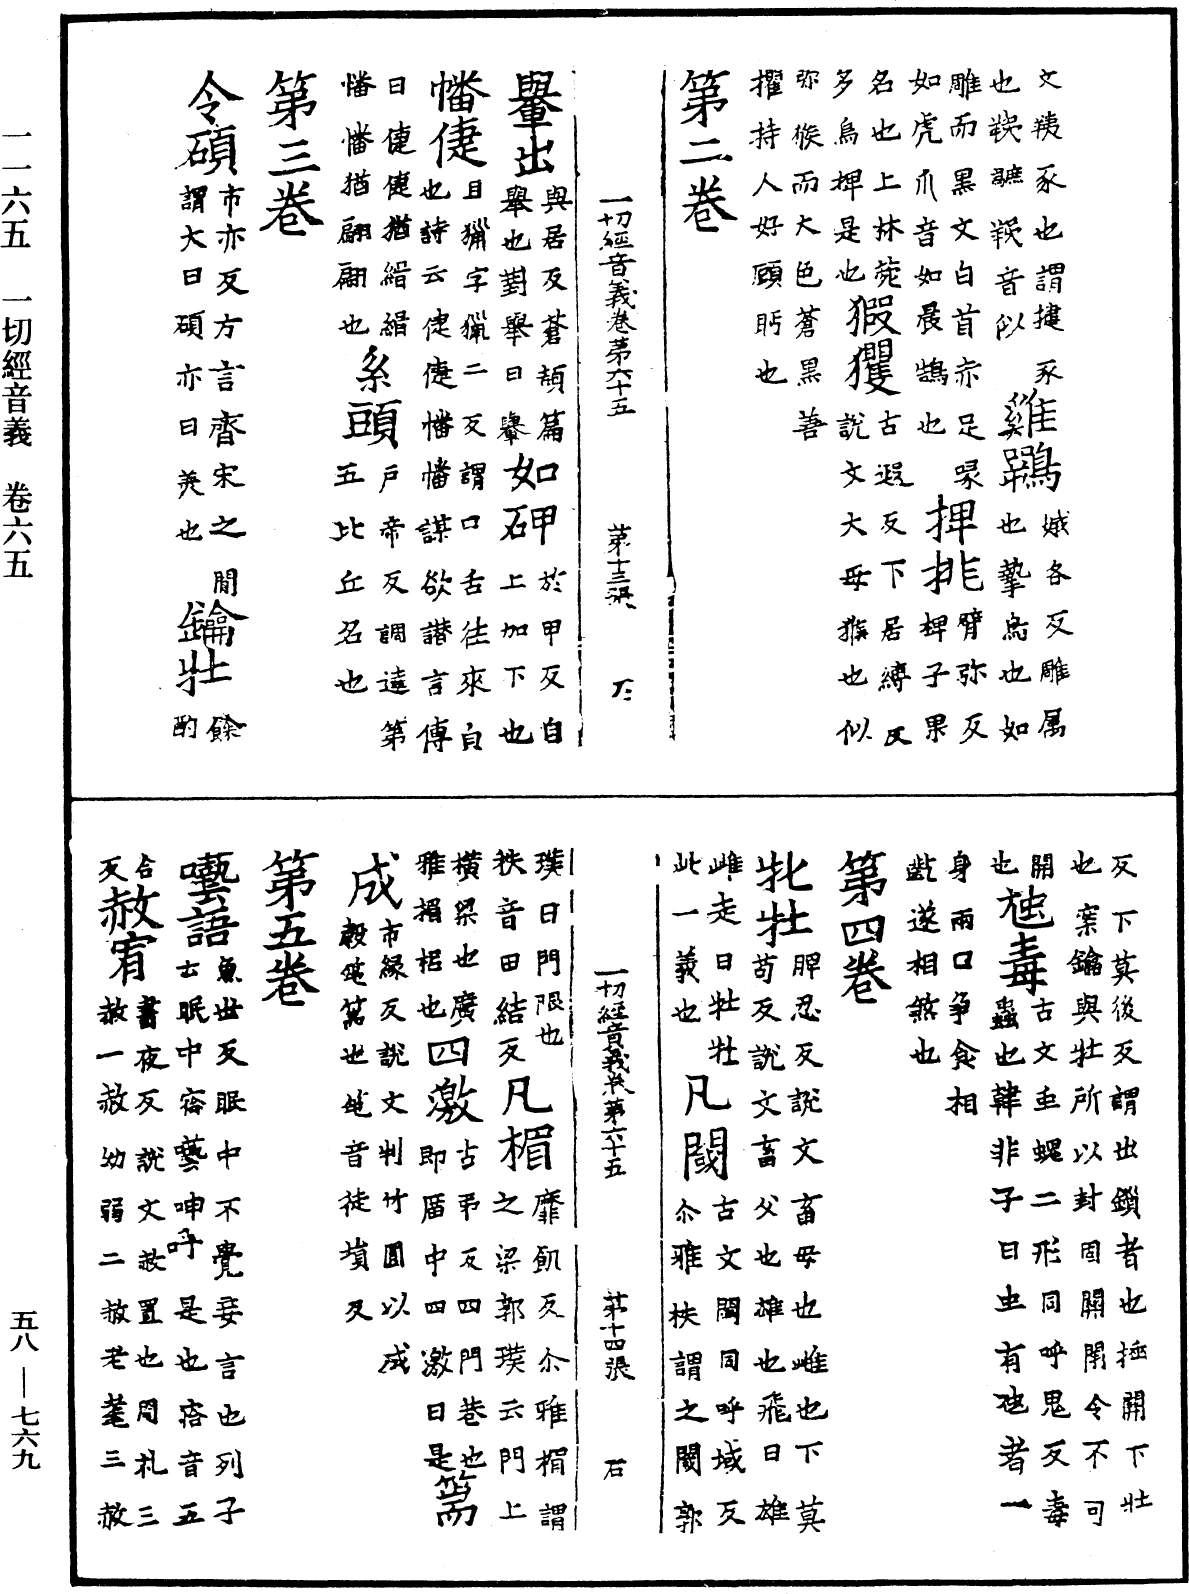 一一六五　一切經音義　卷六五
五八—七六九
文羠豕也謂揵豕
雞鶚
嫉各反雕属
也鶚音似
也摯鳥也如
雕而黑文白首赤足喙
捭排
臂弥反
如虎爪音如晨鵠也
椑子果
名也上林菀
古遐反下居縛反
多鳥捭是也
猳玃
說文大母猴也似
弥猴而大色蒼黑善
攫持人好顧眄也
第二卷
一切經音義卷第六十五　第十三張　石
轝出
與居反蒼頡篇
轝也對舉曰轝
如砷
於甲反自
上加下也
幡倢
且獵字獵二反謂口舌往來皃
也詩云倢倢幡幡謀欲譖言傳
曰倢倢猶緝緝
幡幡猶翩翩也
糸頭
戶帝反調達第
五比丘名也
第三卷
令碩
市亦反方言齊宋之間
謂大曰碩亦曰美也
鑰牡
餘酌
反下莫後反謂出鎖者也捶開下壯
也案鑰與牡所以封固關閉令不可
開也
虵毒
古文虫蝿二形同呼鬼反毒
蟲也韓非子曰虫有虵者一
身兩口爭食相
齕遂相煞也
第四卷
牝牡
脾忍反說文畜母也雌也下莫
苟反說文畜父也雄也飛曰雄
雌走曰牡牡
此一義也
凡閾
古文閾同呼域反
尒雅柣謂之閾郭
一切經音義卷第六十五　第十四張　石
璞曰門限也
柣音田結反
凡楣
靡飢反尒雅楣謂
之梁郭璞云門上
橫梁也廣
雅楣梠也
四激
古弔反四門巷也
即㕓中四激曰是
篅成
市緣反說文判竹圓以成
穀篅也音徒損反
第五卷
囈語
魚世反眠中不覺妄言也列子
云眠中啽囈呻呼是也啽音五
合反
赦宥
書夜反說文赦置也周札三
赦一赦幼弱二赦老耄三赦